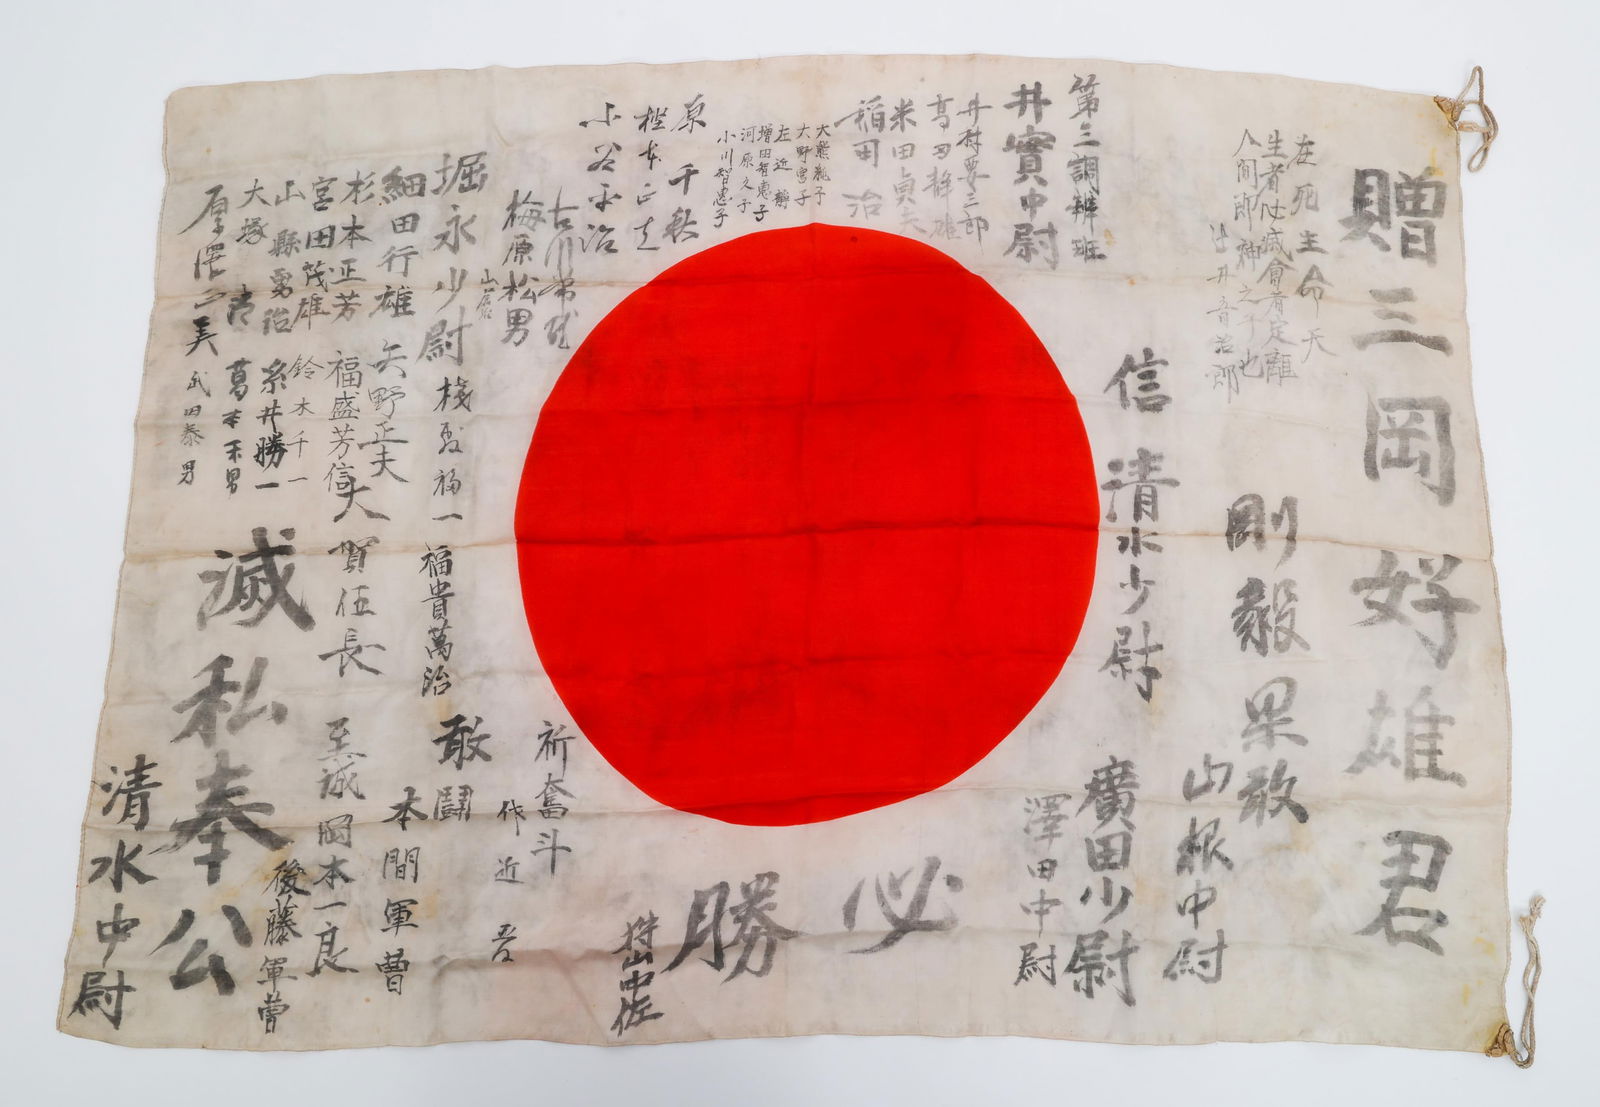 贈三岡好雄君
在死生命天
生者必滅會者定離
人間即神之子也
辻井音治郎
剛毅果敢
山根中尉
信
清水少尉
廣田少尉
澤田中尉
第三調辨班
井實中尉
井村要三郎
米田貞夫
稲田治
大熊親子
大野富子
左近静
増田智惠子
河原文子
小川智惠子
必勝
原千秋
小谷平治
古川
梅原松男
祈奮斗
左近
堀永少尉
一
福貴萬治
敢鬪
本間軍曹
細田行雄
矢野正夫
杉本正芳
福盛芳信
大賀伍長
至誠
岡本一良
宮田茂雄
鈴木千一
山縣勇治
糸井勝一
後藤軍曹
大塚清
葛本不男
武田泰男
滅私奉公
清水中尉